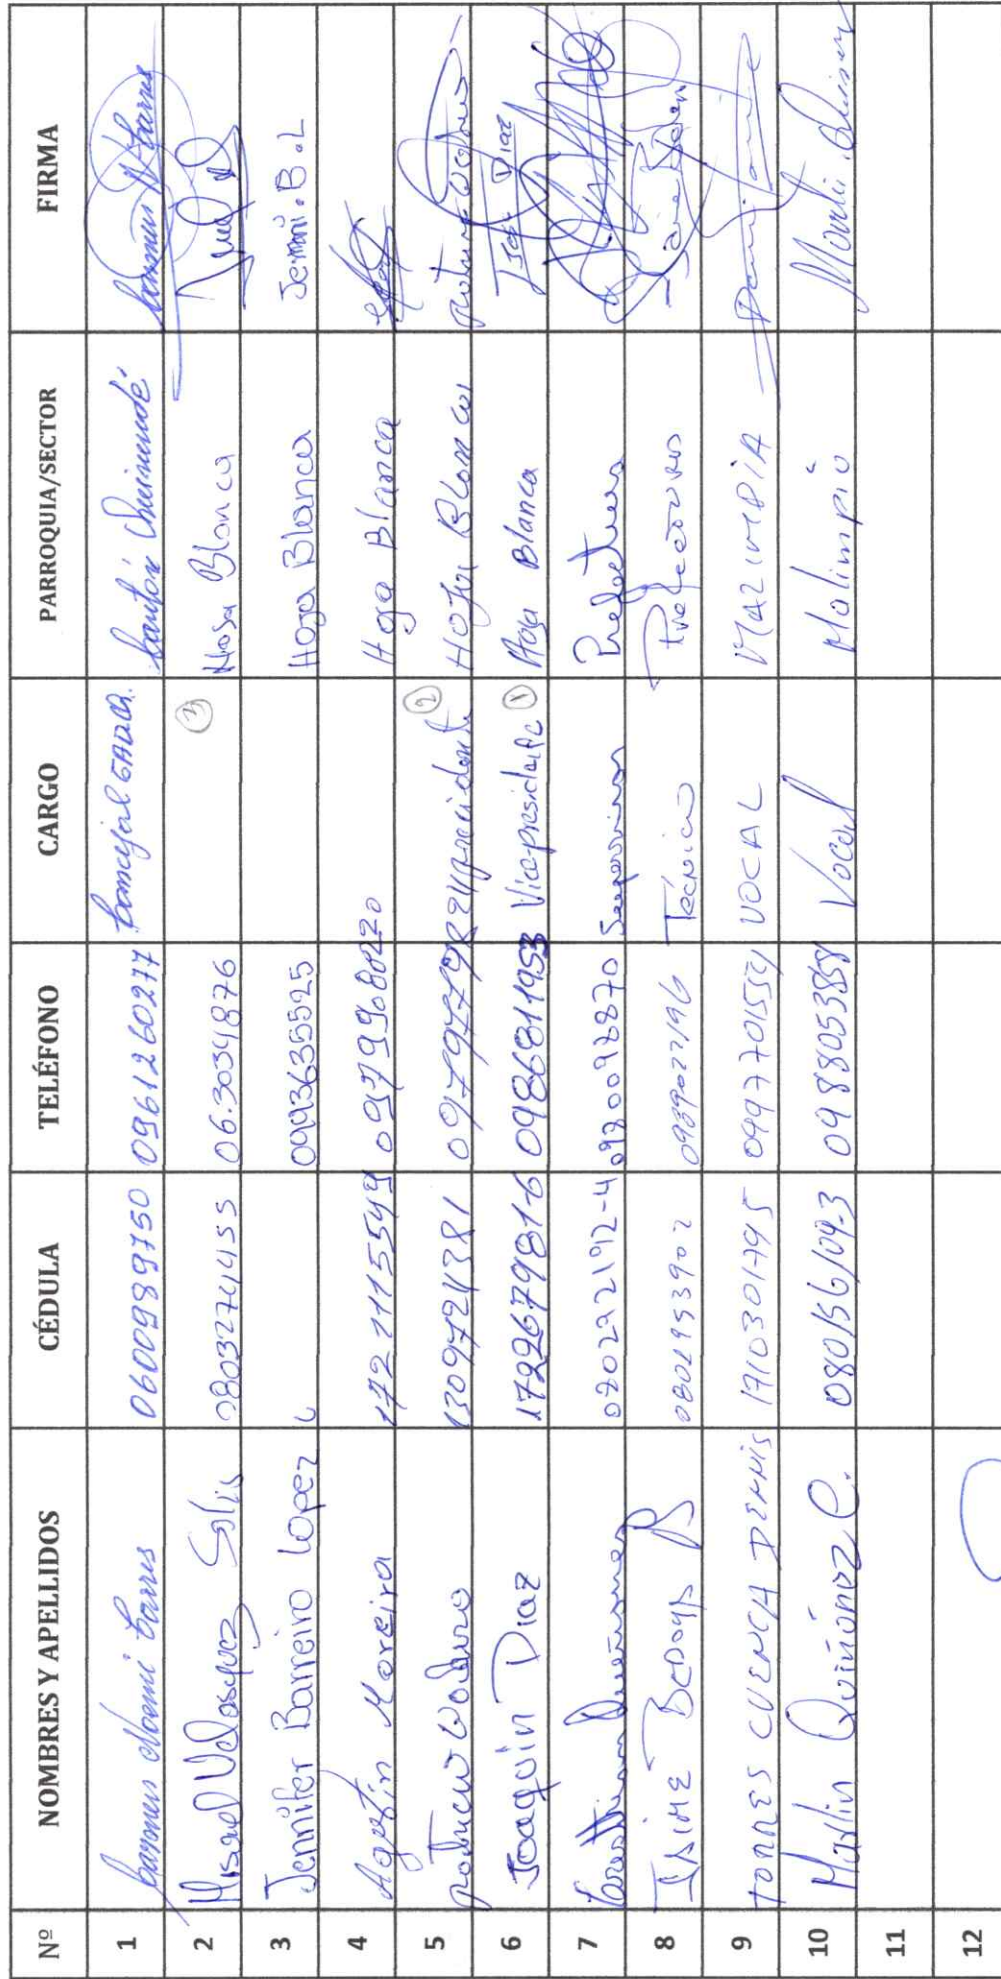 Nº NOMBRES Y APELLIDOS CÉDULA TELÉFONO CARGO PARROQUIA/SECTOR FIRMA
1 Carmen Noemi Torres 0600989750 0961260277 Concejal GADCQ. Cantón Quinindé
2 Misael Velasquez Solis 0803274455 06.3034876 3 Hoja Blanca
3 Jennifer Barreiro Lopez 0993635525 Hoja Blanca Jenni.B.L
4 Agustín Moreira 1721115549 0979968022 Hoja Blanca
5 1309721381 0979779824 precidente 2 Hoja Blanca
6 Joaquin Diaz 172267981-6 0986811953 Vicepresidente 1 Hoja Blanca José Diaz
7 080222192-4 0920092870 Prefectura
8 JAIME BEDOYA 0802953902 0939027196 Técnico Prefectura
9 TORRES CUENCA DENNIS 1710301795 0997701554 VOCAL MALIMPIA
10 Marlin Quiñónez C. 080156109-3 0988053858 Vocal Malimpia
11
12